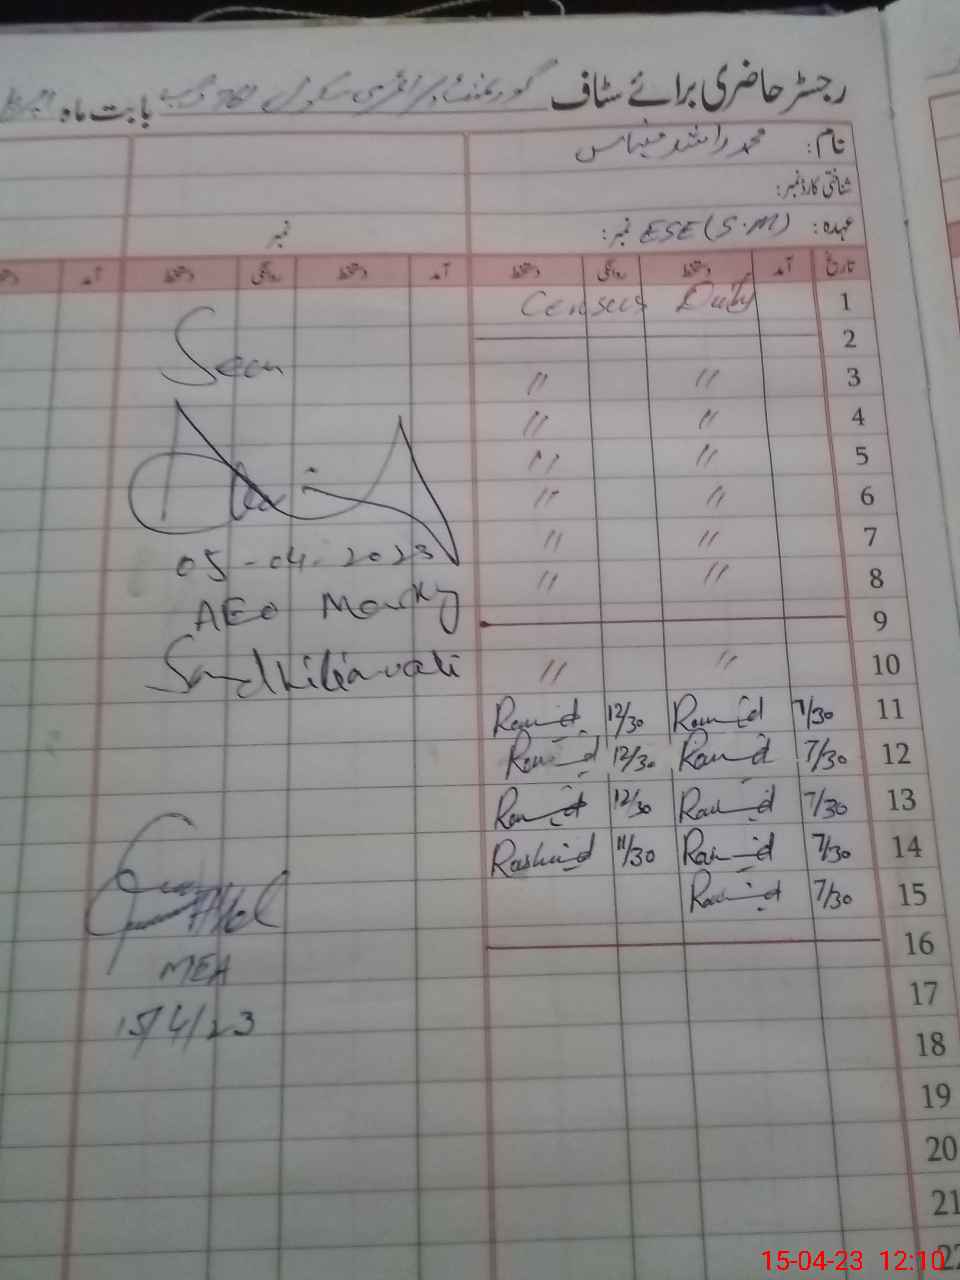 رجسٹر حاضری برائے سٹاف گورنمنٹ پرائمری سکول بابت ماہ
نام: محمد راشد منہاس
شناختی کارڈ نمبر:
عہدہ: ESE (S.M) نمبر:
نمبر
تاریخ آمد دستخط روانگی دستخط آمد دستخط روانگی دستخط آمد
1 Census Duty
2
3 〃 〃
4 〃 〃
5 〃 〃
6 〃 〃
7 〃 〃
8 〃 〃
9
10 〃 〃
11 7/30 Rashid 12/30 Rashid
12 7/30 Rashid 12/30 Rashid
13 7/30 Rashid 12/30 Rashid
14 7/30 Rashid 11/30 Rashid
15 7/30 Rashid
16
17
18
19
20
21
22
Seen
05-04-2023
AEO
MEA
15/4/23
15-04-23 12:10